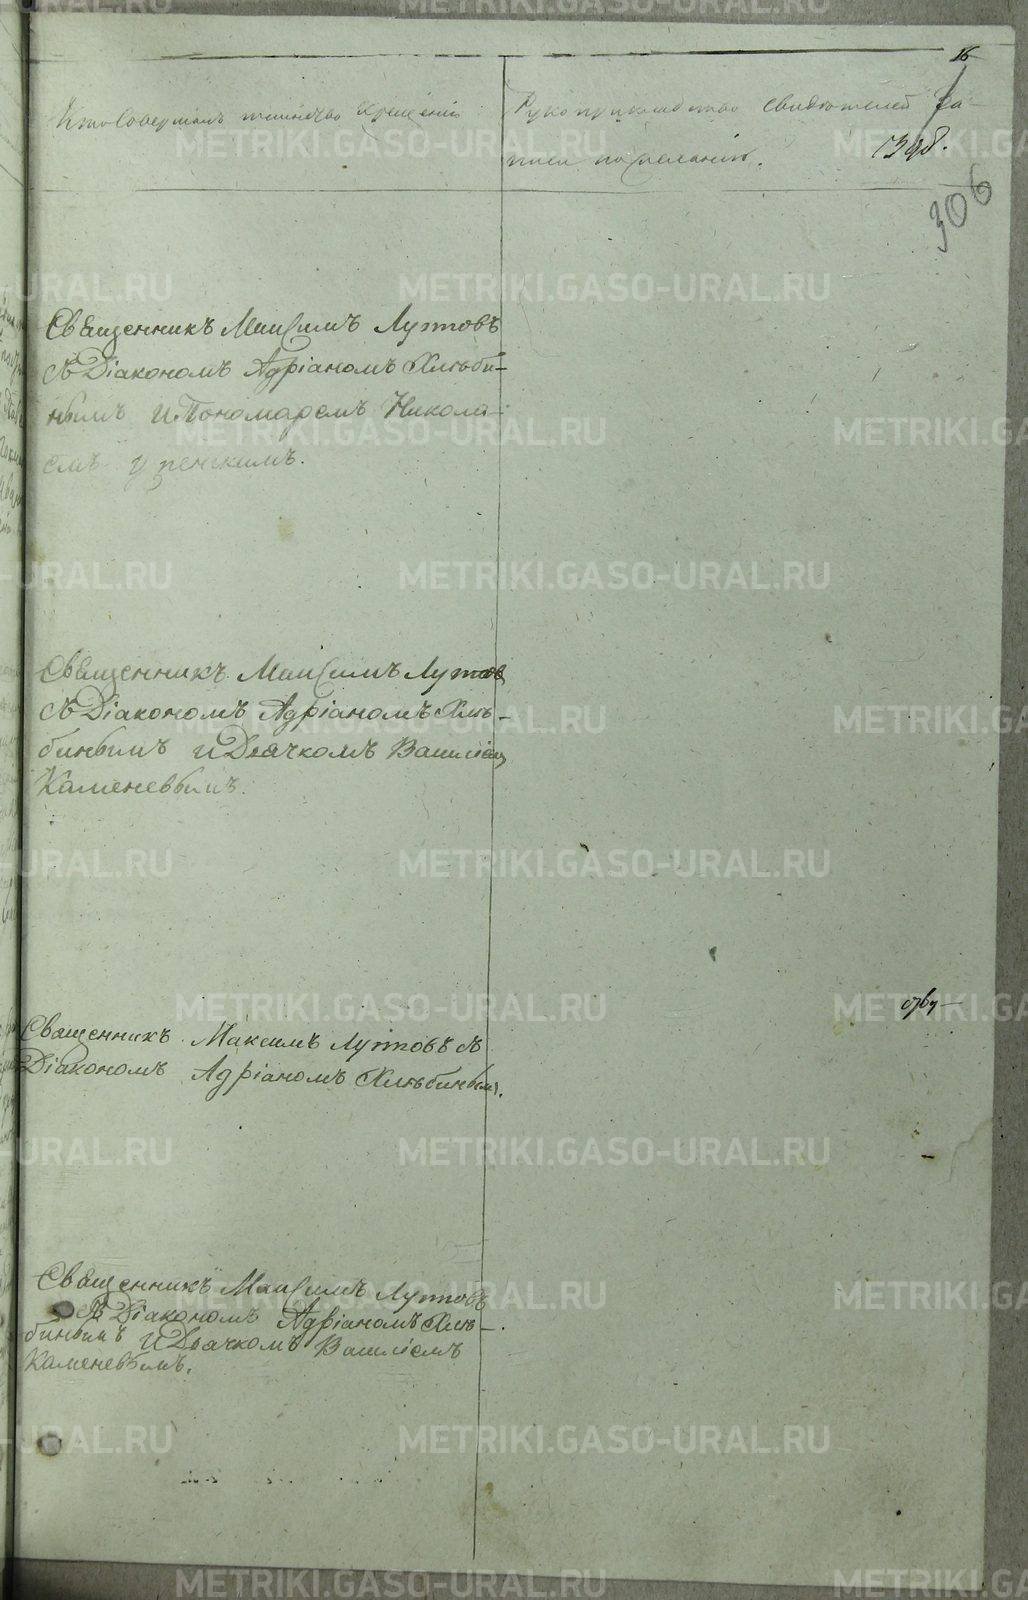 16
Кто совершалъ таинство крещенія
Рукоприкладство свидѣтелей за-
писи по желанію.
1398.
306
Священникъ Максимъ Лутовъ
съ Діакономъ Адріаномъ Хлѣби-
нымъ и Пономаремъ Никола-
емъ
Священникъ Максимъ Лутовъ
съ Діакономъ Адріаномъ Хлѣ-
бинымъ и Дьячкомъ Василіемъ
Каменевымъ.
Священникъ Максимъ Лутовъ съ
Діакономъ Адріаномъ Хлѣбинымъ.
Священникъ Максимъ Лутовъ
съ Діакономъ Адріаномъ Хлѣ-
бинымъ и Дьячкомъ Василіемъ
Каменевымъ.
METRIKI.GASO-URAL.RU